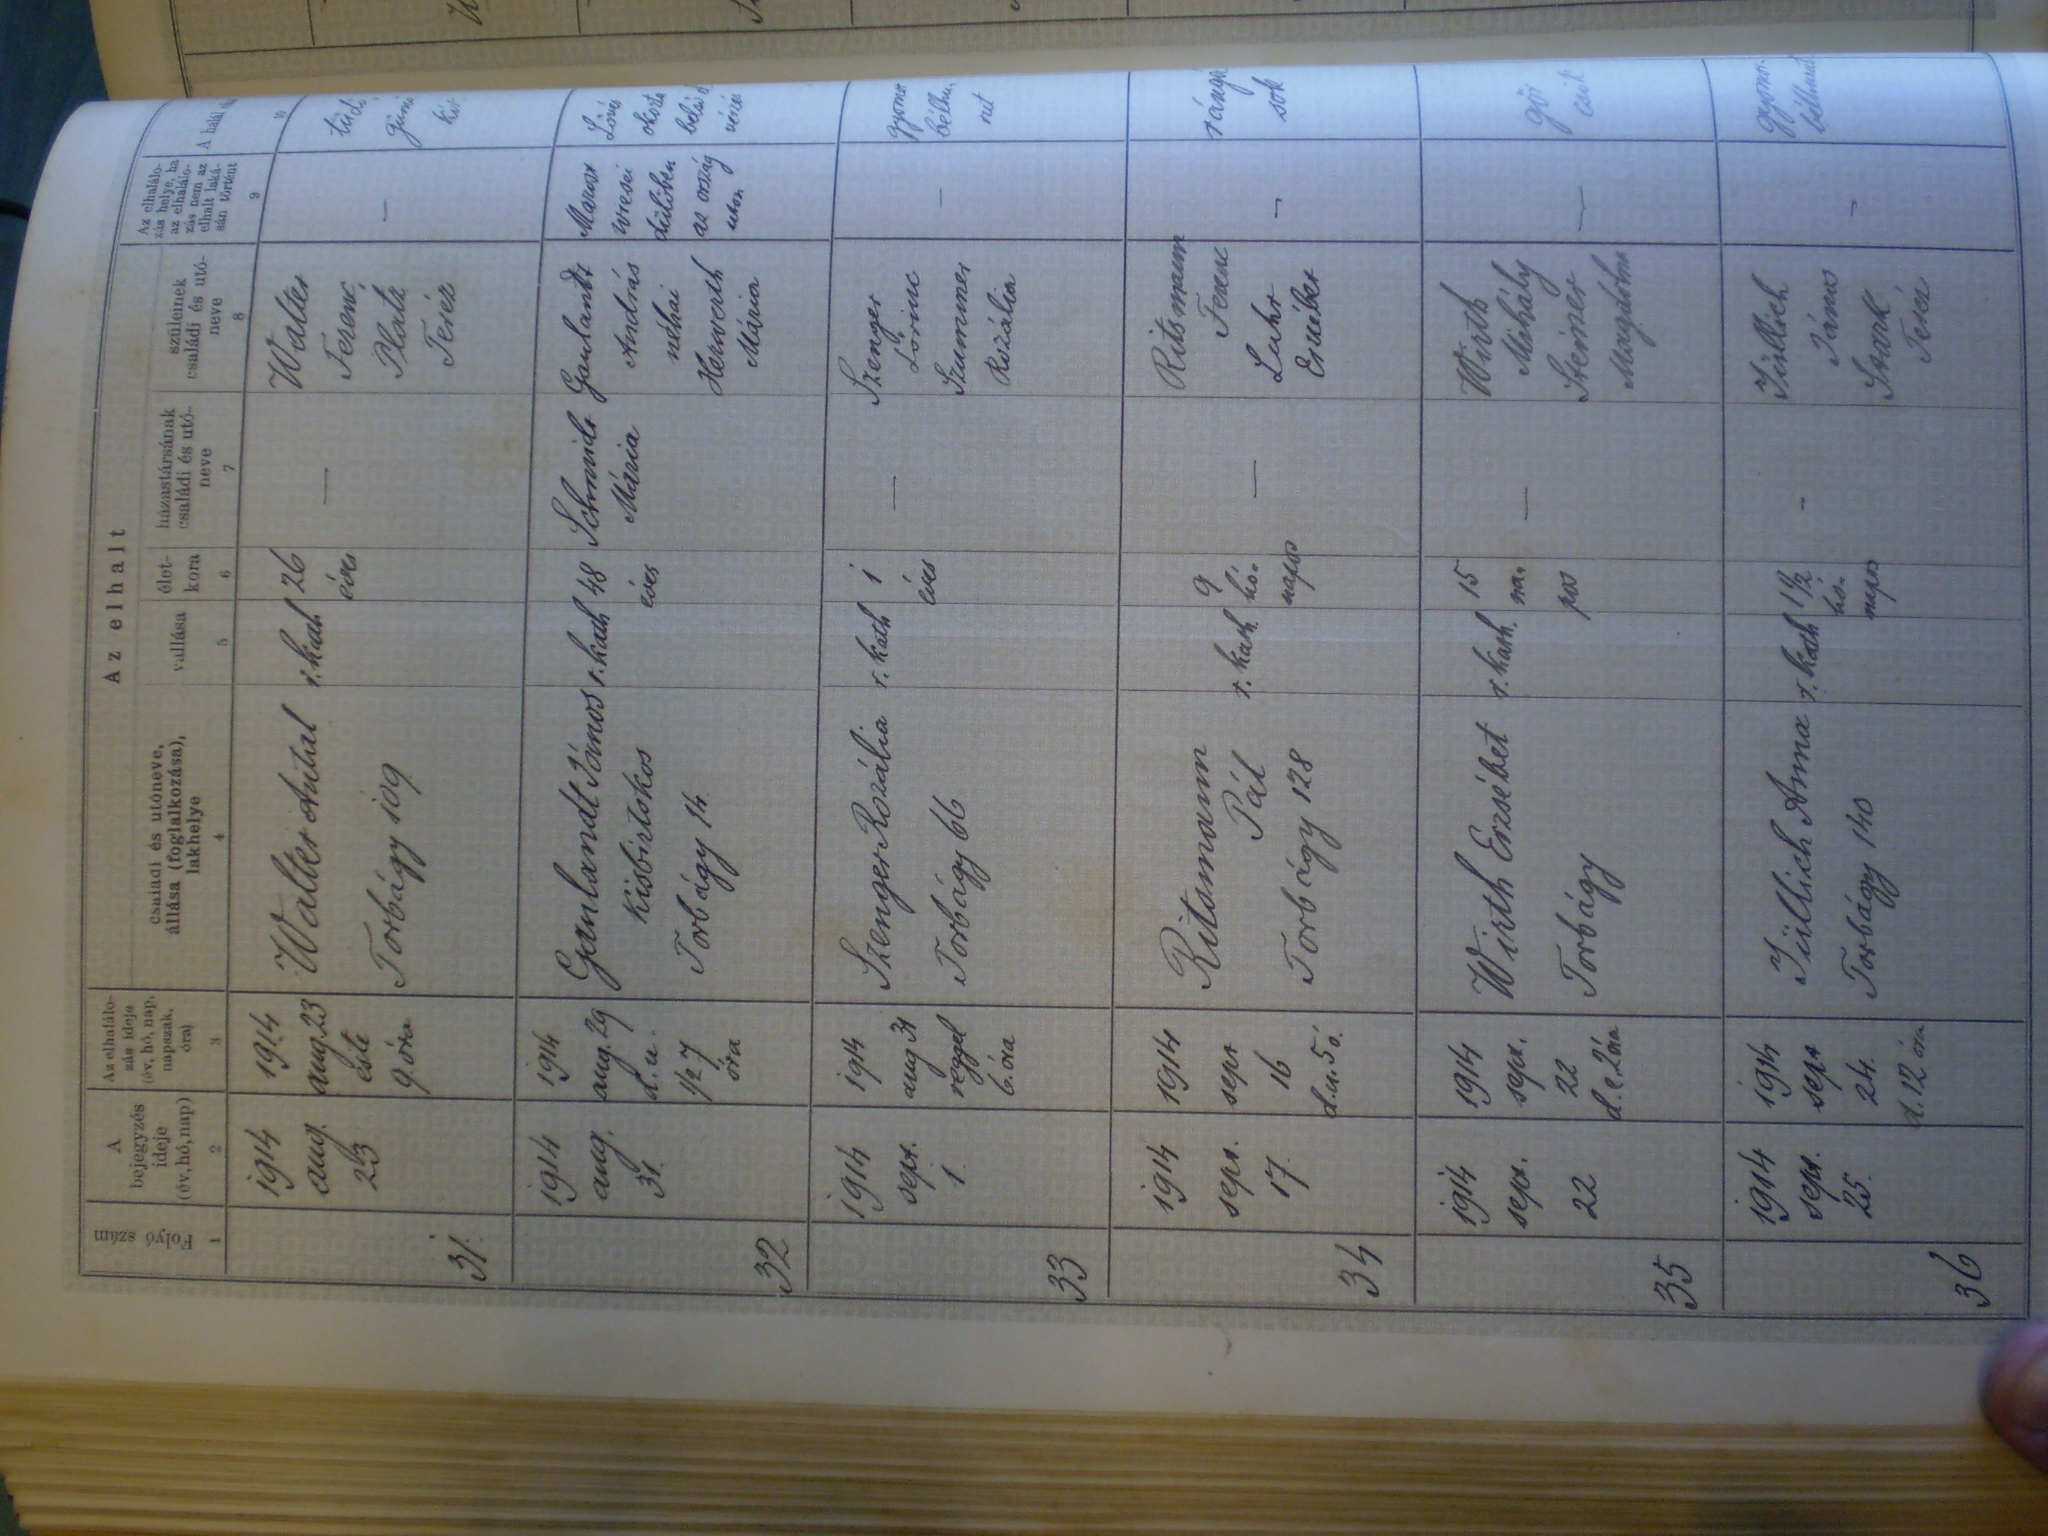 Az elhalt
Folyó szám
A bejegyzés ideje (év, hó, nap)
Az elhalálozás ideje (év, hó, nap, napszak, óra)
családi és utóneve, állása (foglalkozása), lakhelye
vallása
életkora
házastársának családi és utóneve
szüleinek családi és utóneve
Az elhalálozás helye, ha az elhalálozás nem az elhalt lakásán történt
A halál
1 2 3 4 5 6 7 8 9 10
31.
1914
aug.
23
1914
aug. 23
este
9 óra
Walter Antal
Torbágy 109
r. kath
26
éves
—
Walter
Ferenc,
Platz
Teréz
—
32
1914
aug.
31.
1914
aug. 29
d. u.
1/2 7
óra
Gaulandt János
kisbirtokos
Torbágy 14
r. kath
48
éves
Schmidt
Mária
Gaulandt
András
néhai
Herwerth
Mária
dülőben
az ország
uton
Lövés
okozta
33
1914
sept.
1.
1914
aug 31
reggel
6 óra
Szenger Rozália
Torbágy 66
r. kath
1
éves
—
Szenger
Lőrinc
Szummer
Rozália
—
gyomor
bélhu
rut
34
1914
sept.
17.
1914
sept
16
d. u. 5 ó.
Ritsmann
Pál
Torbágy 128
r. kath.
9
hó-
napos
—
Ritsmann
Ferenc
Luhr
Erzsébet
—
rángá
sok
35
1914
sept.
22
1914
sept.
22
d. e. 2 óra
Wirth Erzsébet
Torbágy
r. kath.
15
na-
pos
—
Wirth
Mihály
Steiner
Magdolna
—
gör
csök
36
1914
sept.
25.
1914
sept
24.
d. 12 óra
Jüllich Anna
Torbágy 140
r. kath
1 1/2
hó-
napos
-
Jüllich
János
Stark
Teréz
—
gyomor
bélhurut